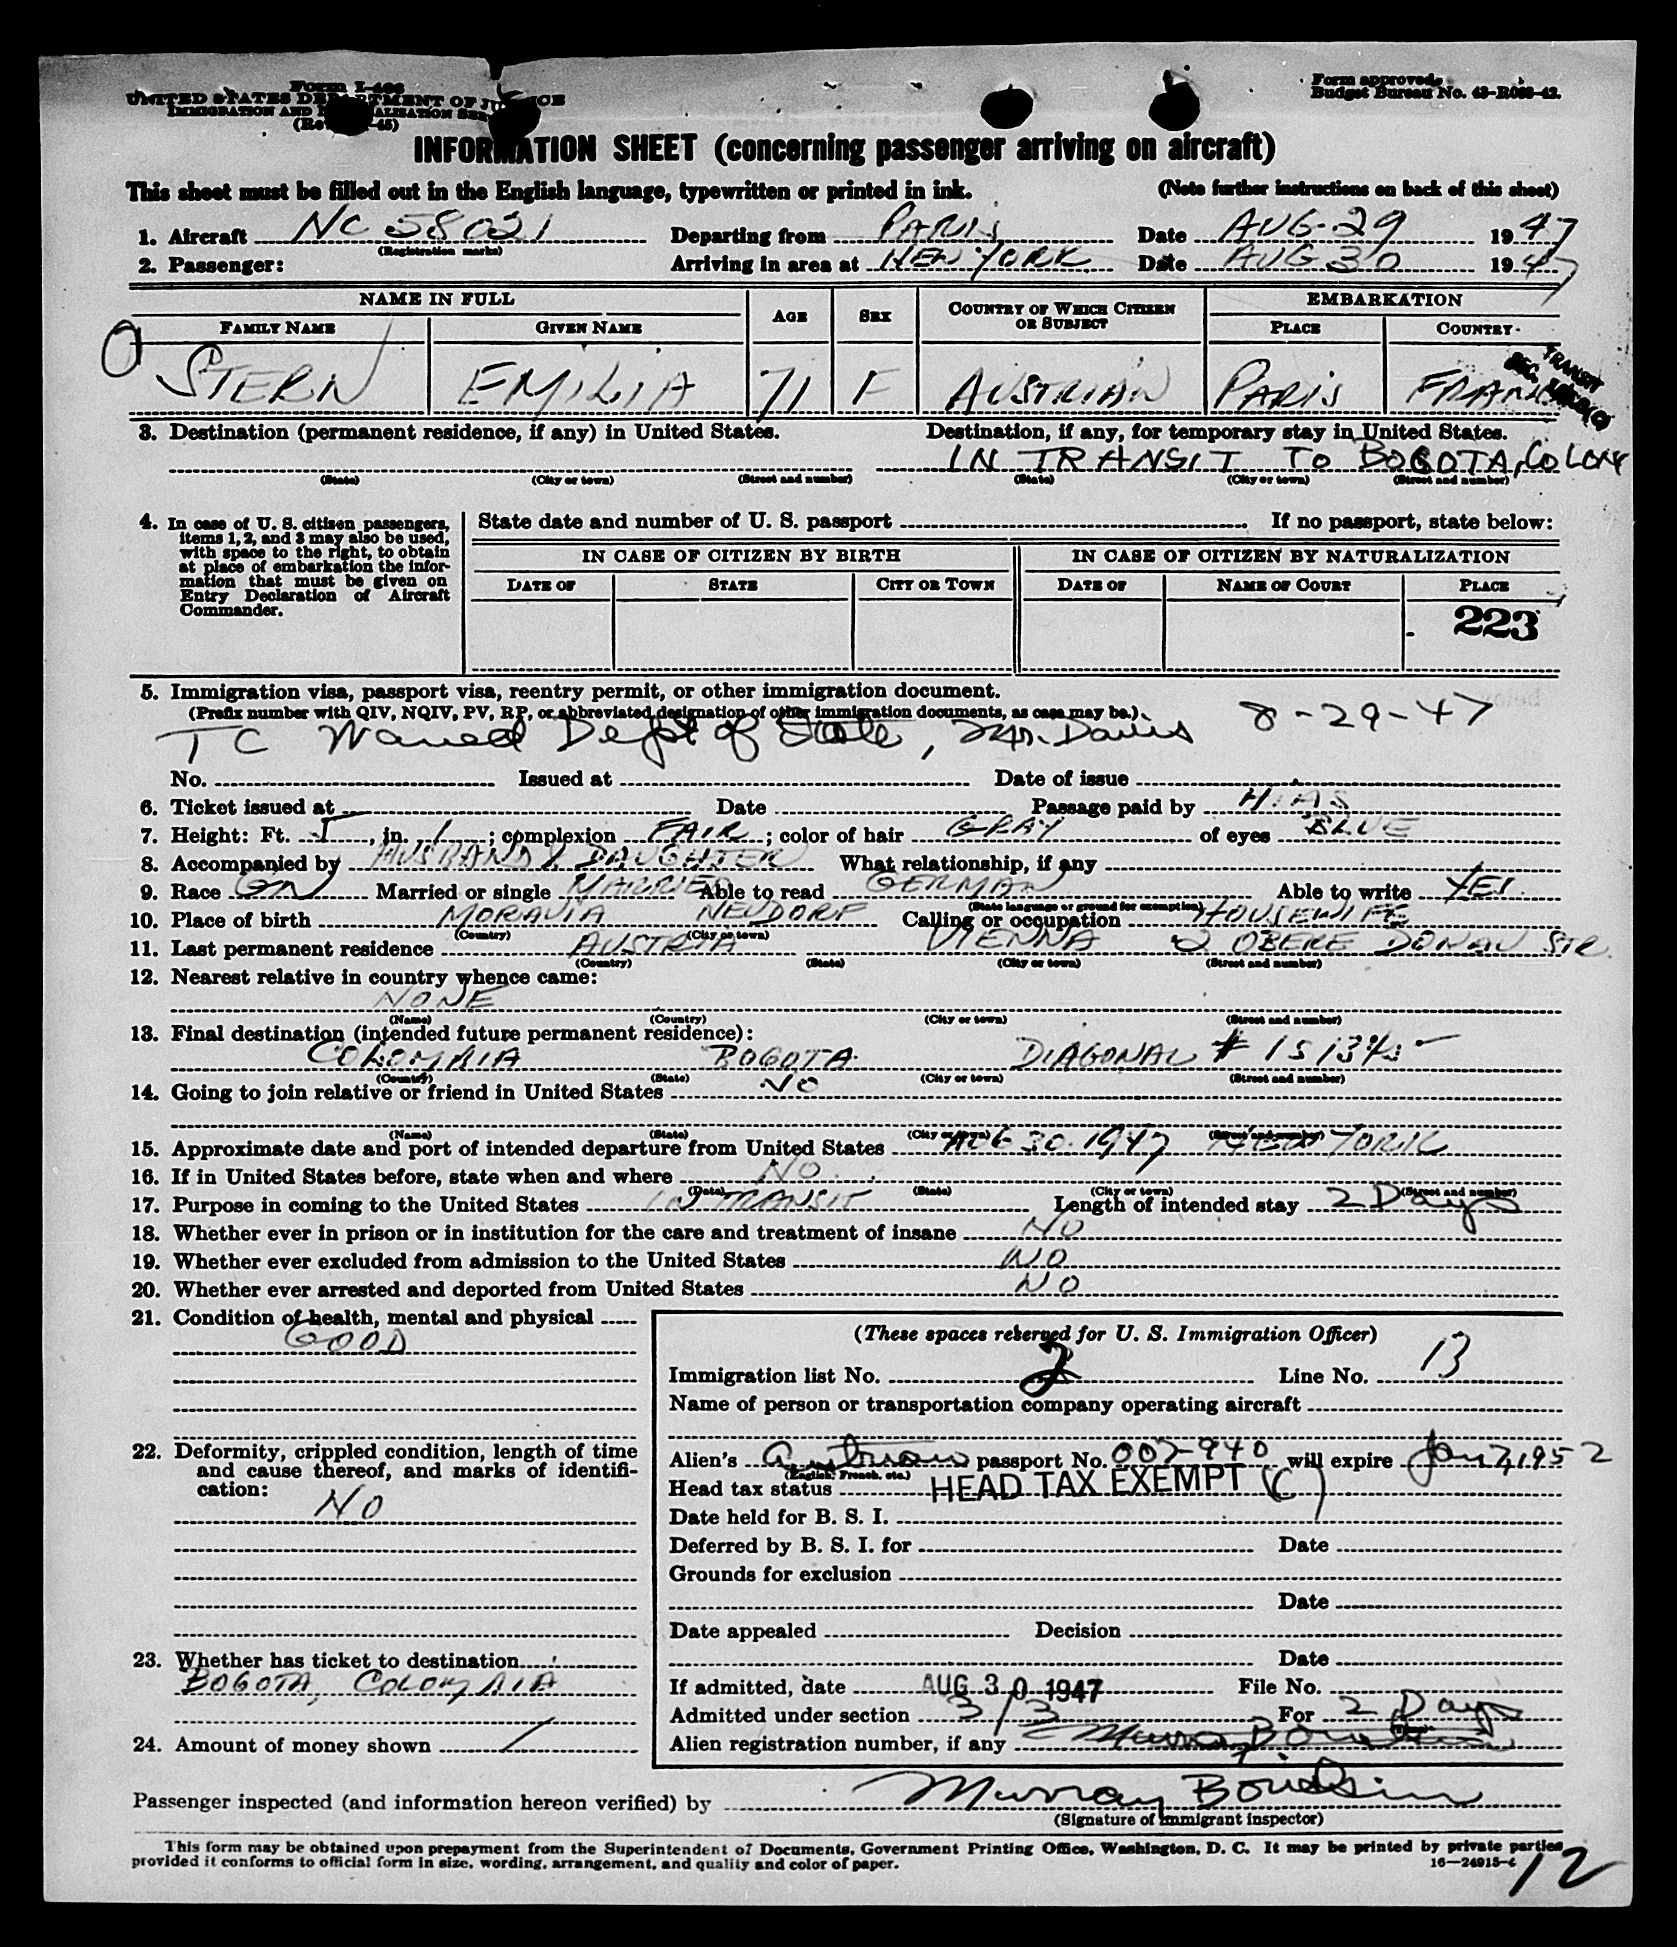 Form I-466
UNITED STATES DEPARTMENT OF JUSTICE
IMMIGRATION AND NATURALIZATION SER
(Re -45)
Form approved.
Budget Bureau No. 43-R083-42.
INFORMATION SHEET (concerning passenger arriving on aircraft)
This sheet must be filled out in the English language, typewritten or printed in ink. (Note further instructions on back of this sheet)
1. Aircraft NC 58021 Departing from PARIS Date AUG. 29 1947
(Registration marks)
2. Passenger: Arriving in area at NEW YORK Date AUG 30 1947
NAME IN FULL AGE SEX COUNTRY OF WHICH CITIZEN OR SUBJECT EMBARKATION
FAMILY NAME GIVEN NAME PLACE COUNTRY
STERN EMILIA 71 F AUSTRIAN PARIS FRANCE
TRANSIT
3. Destination (permanent residence, if any) in United States. Destination, if any, for temporary stay in United States.
IN TRANSIT TO BOGOTA, COLOM
(State) (City or town) (Street and number) (State) (City or town) (Street and number)
4. In case of U. S. citizen passengers, items 1, 2, and 3 may also be used, with space to the right, to obtain at place of embarkation the information that must be given on Entry Declaration of Aircraft Commander.
State date and number of U. S. passport If no passport, state below:
IN CASE OF CITIZEN BY BIRTH IN CASE OF CITIZEN BY NATURALIZATION
DATE OF STATE CITY OR TOWN DATE OF NAME OF COURT PLACE
223
5. Immigration visa, passport visa, reentry permit, or other immigration document.
(Prefix number with QIV, NQIV, PV, RP, or abbreviated designation of other immigration documents, as case may be.)
TC Waived Dept of State, Mr. Davis 8-29-47
No. Issued at Date of issue
6. Ticket issued at Date Passage paid by HIAS
7. Height: Ft. 5, in. 1; complexion FAIR; color of hair GRAY of eyes BLUE
8. Accompanied by HUSBAND & DAUGHTER What relationship, if any
9. Race GN Married or single MARRIED Able to read GERMAN Able to write YES.
(State language or ground for exemption)
10. Place of birth MORAVIA NEUDORF Calling or occupation HOUSEWIFE
(Country) (City or town)
11. Last permanent residence AUSTRIA VIENNA 2 OBERE DONAU STR.
(Country) (State) (City or town) (Street and number)
12. Nearest relative in country whence came:
NONE
(Name) (Country) (City or town) (Street and number)
13. Final destination (intended future permanent residence):
COLOMBIA BOGOTA DIAGONAL # 15 13
(Country) (State) (City or town) (Street and number)
14. Going to join relative or friend in United States NO
(Name) (State) (City or town) (Street and number)
15. Approximate date and port of intended departure from United States AUG 30. 1947 NEW YORK
16. If in United States before, state when and where NO
(Date) (State) (City or town) (Street and number)
17. Purpose in coming to the United States IN TRANSIT Length of intended stay 2 Days
18. Whether ever in prison or in institution for the care and treatment of insane NO
19. Whether ever excluded from admission to the United States NO
20. Whether ever arrested and deported from United States NO
21. Condition of health, mental and physical
GOOD
22. Deformity, crippled condition, length of time and cause thereof, and marks of identification:
NO
23. Whether has ticket to destination
BOGOTA, COLOMBIA
24. Amount of money shown /
(These spaces reserved for U. S. Immigration Officer)
Immigration list No. 2 Line No. 13
Name of person or transportation company operating aircraft
Alien's Austrian passport No. 007-940 will expire Jan 7, 1952
(English, French, etc.)
Head tax status HEAD TAX EXEMPT (C)
Date held for B. S. I.
Deferred by B. S. I. for Date
Grounds for exclusion
Date
Date appealed Decision
Date
If admitted, date AUG 30 1947 File No.
Admitted under section 3/3 For 2 Days
(Time)
Alien registration number, if any
Passenger inspected (and information hereon verified) by Murray
(Signature of immigrant inspector)
This form may be obtained upon prepayment from the Superintendent of Documents, Government Printing Office, Washington, D. C. It may be printed by private parties
provided it conforms to official form in size, wording, arrangement, and quality and color of paper.
16—24915-4
12